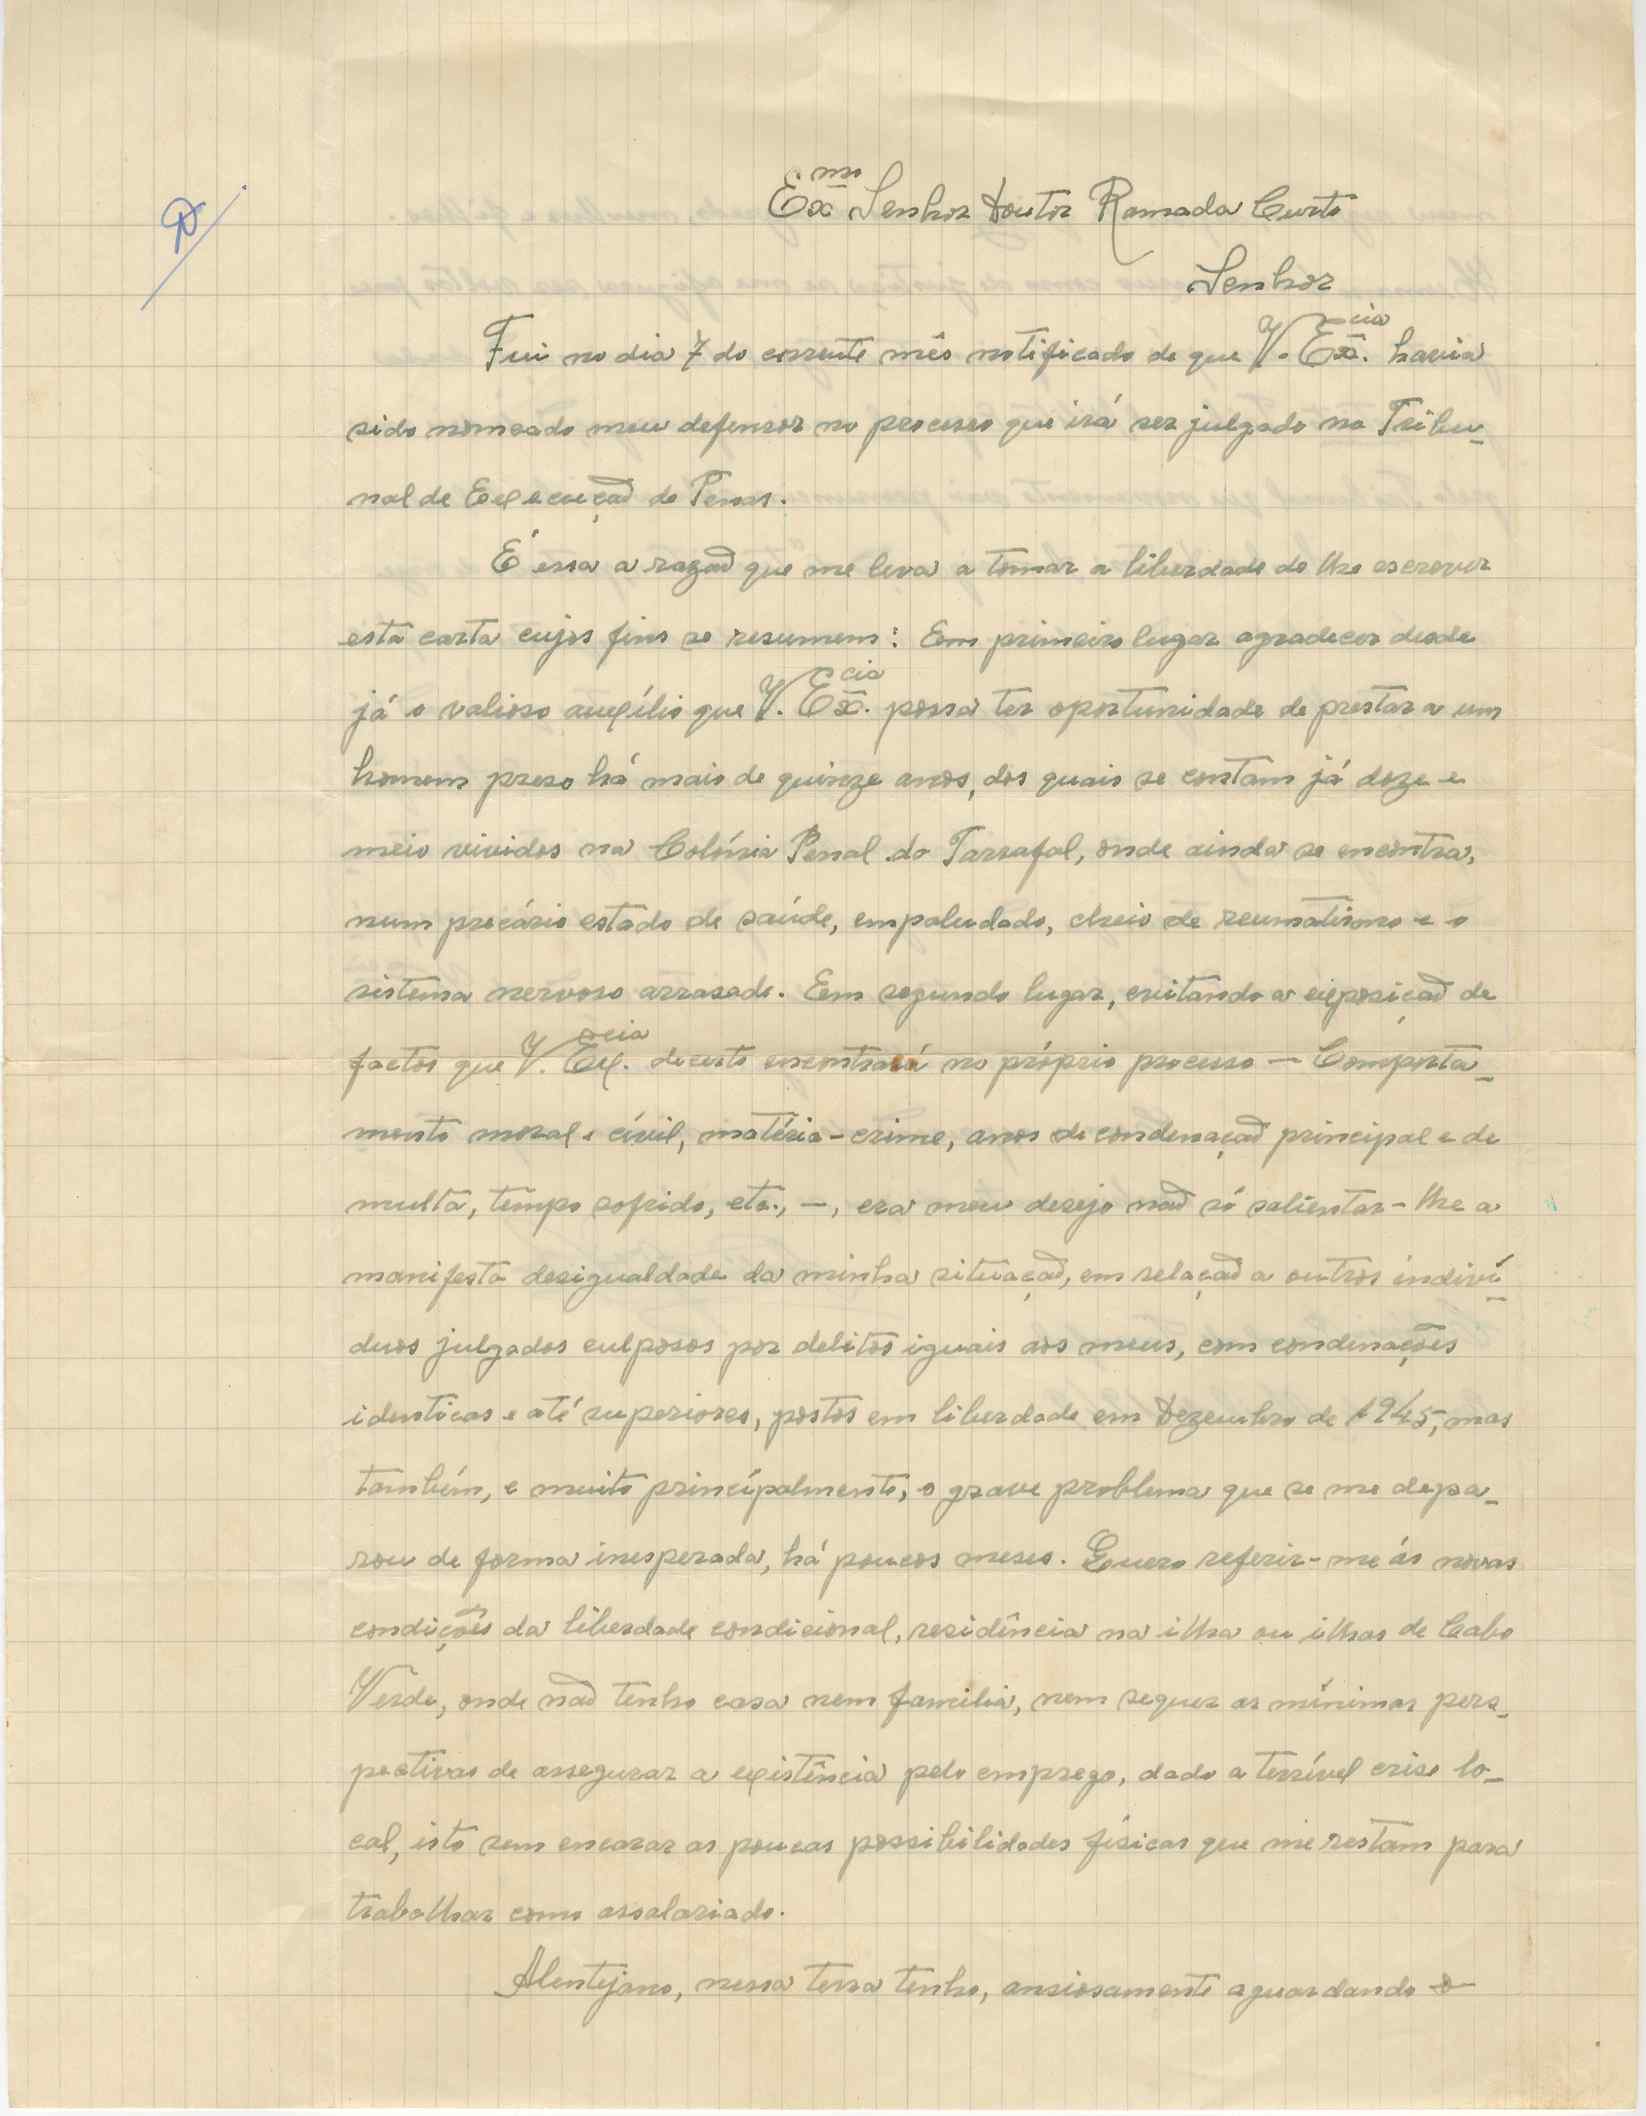 Ex.mo Senhor Doutor Ramada Curto
Senhor
Fui no dia 7 do corrente mês notificado de que V. Ex.cia havia
sido nomeado meu defensor no processo que irá ser julgado no Tribu-
nal de Execução de Penas.
É essa a razão que me leva a tomar a liberdade de lhe escrever
esta carta cujos fins se resumem: Em primeiro lugar agradecer desde
já o valioso auxílio que V. Ex.cia possa ter oportunidade de prestar a um
homem preso há mais de quinze anos, dos quais se contam já doze e
meio vividos na Colónia Penal do Tarrafal, onde ainda se encontra,
num precário estado de saúde, empaludado, cheio de reumatismo e o
sistema nervoso arrasado. Em segundo lugar, evitando a exposição de
factos que V. Ex.cia decerto encontrará no próprio processo — Comporta-
mento moral e cívil, matéria-crime, anos de condenação principal e de
multa, tempo sofrido, etc., —, era meu desejo não só salientar-lhe a
manifesta desigualdade da minha situação, em relação a outros indiví-
duos julgados culposos por delitos iguais aos meus, com condenações
identicas e até superiores, postos em liberdade em Dezembro de 1945, mas
também, e muito principalmente, o grave problema que se me depa-
rou de forma inesperada, há poucos meses. Quero referir-me ás novas
condições da liberdade condicional, residência na ilha ou ilhas de Cabo
Verde, onde não tenho casa nem família, nem sequer as mínimas pers-
pectivas de assegurar a existência pelo emprego, dado a terrível crise lo-
cal, isto sem encarar as poucas possibilidades físicas que me restam para
trabalhar como assalariado.
Alentejano, nessa terra tenho, ansiosamente aguardando o